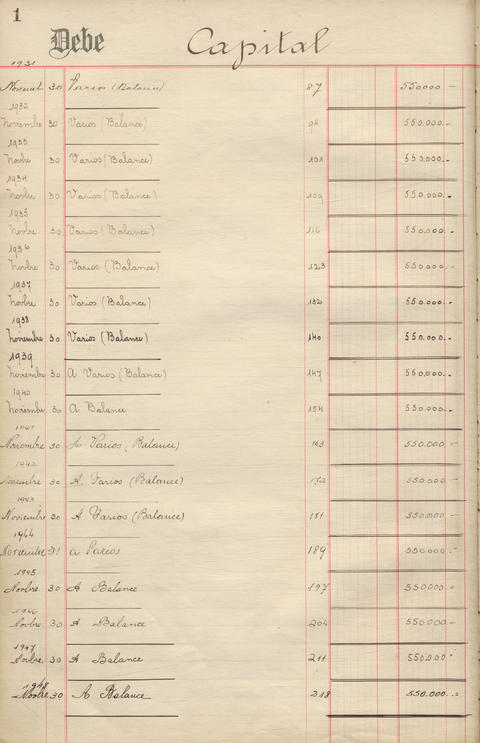 1
Debe Capital
1931
Noviembre 30 Varios (Balance) 87 550000 -
1932
Noviembre 30 Varios (Balance) 94 550.000.-
1933
Novbre 30 Varios (Balance) 101 550.000.-
1934
Novbre 30 Varios (Balance) 109 550.000.-
1935
Novbre 30 Varios (Balance) 116 550.000.-
1936
Novbre 30 Varios (Balance) 123 550.000.-
1937
Novbre 30 Varios (Balance) 132 550.000.-
1938
Noviembre 30 Varios (Balance) 140 550.000.-
1939
Noviembre 30 A Varios (Balance) 147 550.000.-
1940
Noviembre 30 A Balance 154 550.000.-
1941
Noviembre 30 A Varios (Balance) 163 550.000 -
1942
Noviembre 30 A Varios (Balance) 172 550.000 -
1943
Noviembre 30 A Varios (Balance) 181 550.000 -
1944
Noviembre a Varios 189 550.000 -
1945
Novbre 30 A Balance 197 550.000 -
1946
Novbre 30 A Balance 204 550.000 -
1947
Novbre 30 A Balance 211 550.000 -
1948
Novbre 30 A Balance 218 550.000 -